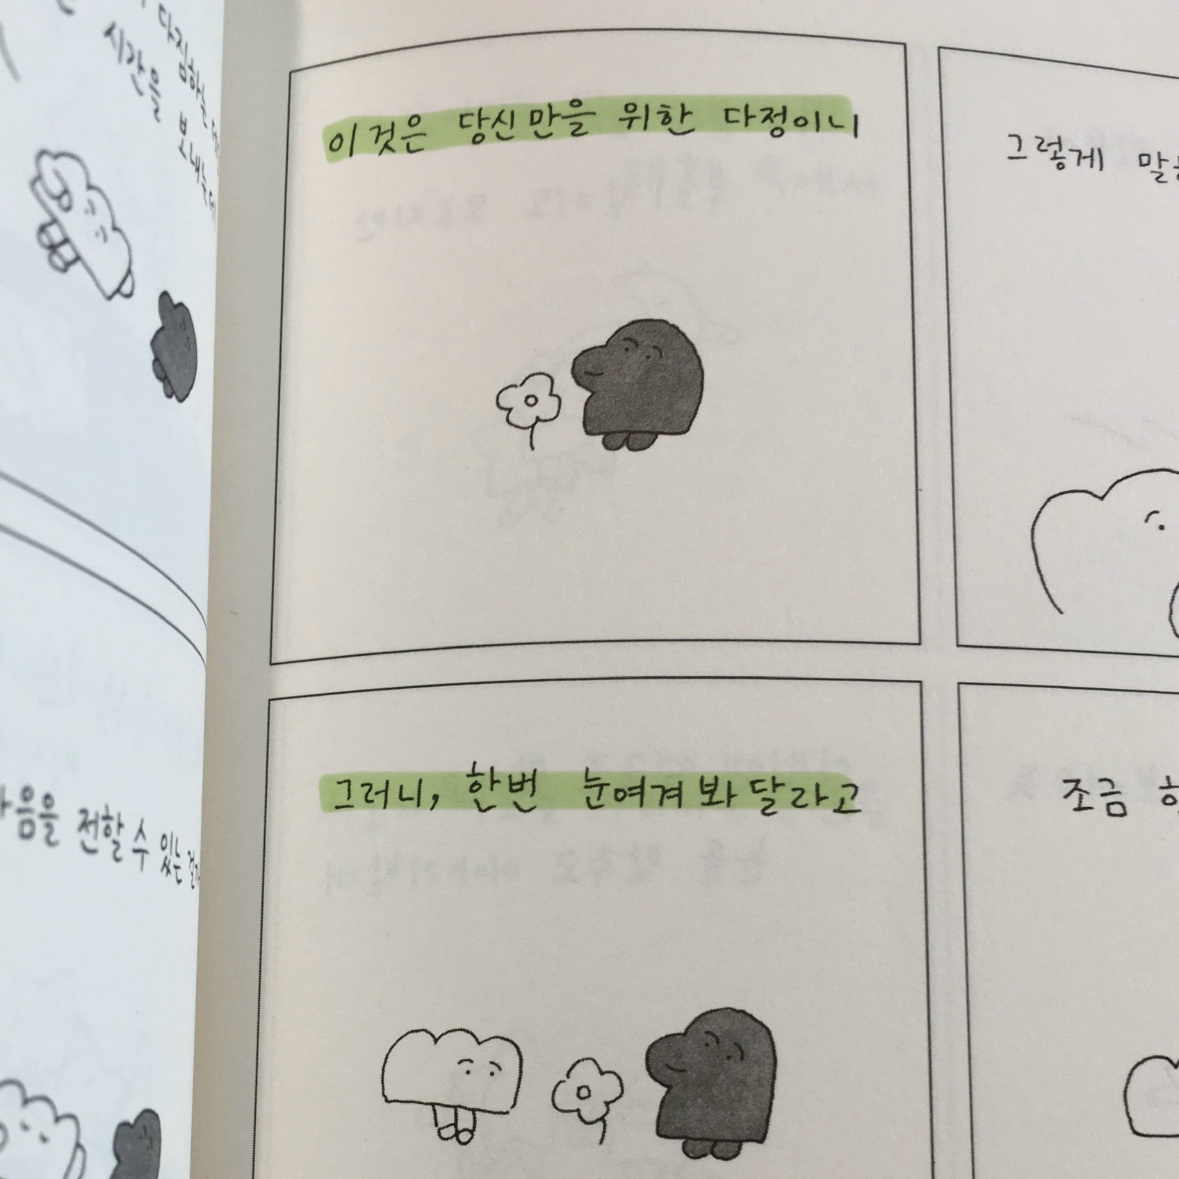 다짐하는
시간을 보내는데
마음을 전할 수 있는
이것은 당신만을 위한 다정이니
그렇게
그러니, 한번 눈여겨봐 달라고
조금